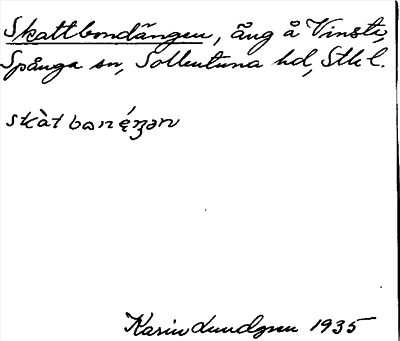 Skattbondängen, äng å Vinsta,
Spånga sn, Sollentuna hd, Sthl.
skàt bon éŋən
Karin Lundgren 1935